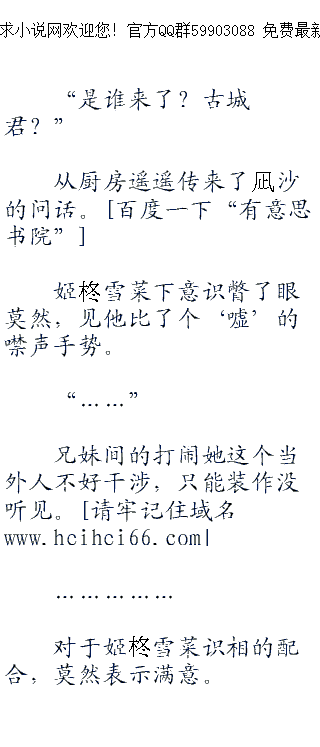 求小说网欢迎您！官方QQ群59903088 免费最新
“是谁来了？古城
君？”
从厨房遥遥传来了凪沙
的问话。[百度一下“有意思
书院”]
姬柊雪菜下意识瞥了眼
莫然，见他比了个‘嘘’的
噤声手势。
“……”
兄妹间的打闹她这个当
外人不好干涉，只能装作没
听见。[请牢记住域名
www.hcihci66.com|
……………
对于姬柊雪菜识相的配
合，莫然表示满意。